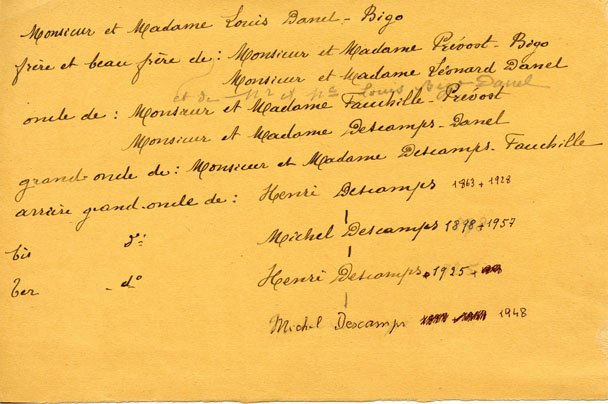 Monsieur et Madame Louis Danel - Bigo
frère et beau frère de : Monsieur et Madame Prévost - Bigo
Monsieur et Madame Léonard Danel
et de Mr et Me Louis Bigo Danel
oncle de : Monsieur et Madame Fauchille - Prévost
Monsieur et Madame Descamps - Danel
grand-oncle de : Monsieur et Madame Descamps - Fauchille
arrière grand-oncle de : Henri Descamps 1863 + 1928
bis d° : Michel Descamps 1898 + 1957
ter d° Henri Descamps 1925 +
Michel Descamps 1948